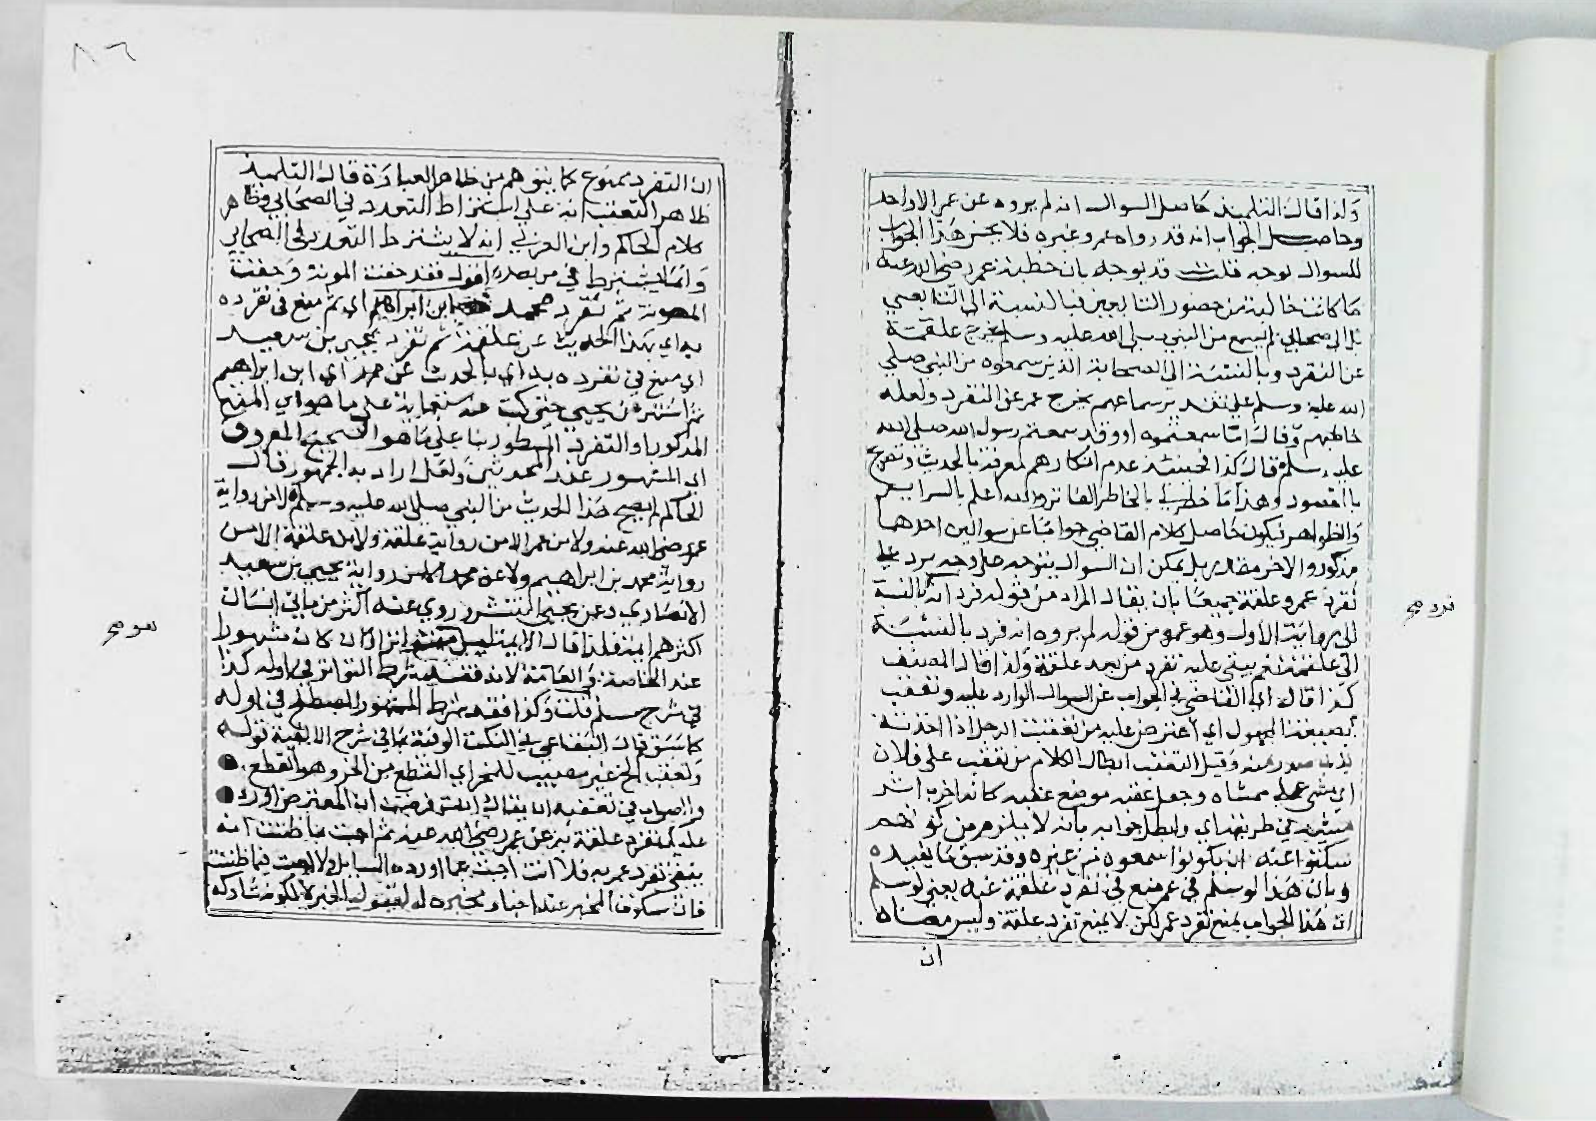 ولذا قال التلميذ حاصل السوال انه لم يروه عن عمر الا واحد
وحاصل الجواب انه قد رواه عمر وغيره فلا يحسن هذا الجواب
للسوال بوجه قلت قد يوجه بان خطبة عمر رضي الله عنه
ما كانت خالية من حضور التابعين فبالنسبة الى التابعي
بل الى صحابي لم يسمع من النبي صلى الله عليه وسلم يخرج علقمة
عن التفرد وبالنسبة الى الصحابة الذين سمعوه من النبي صلى
الله عليه وسلم على تقدير سماعهم يخرج عمر عن التفرد ولعله
خاطبهم وقال اما سمعتموه او وقد سمعتم رسول الله صلى الله
عليه وسلم قال كذا فحينئذ عدم انكارهم لمعرفة بالحديث وتصريح
بالمقصود وهذا ما خطر بالخاطر الفاتر والله اعلم بالسراير
والظواهر فيكون حاصل كلام القاضي جوابا عن سوالين احدهما
مذكور والاخر مقدر بل يمكن ان السوال يتوجه على وجه يرد على
تفرد عمر وعلقمة جميعا بان يقال المراد من قوله فرد انه بالنسبة
الى رواية الاول وهو عمر ومن قوله لم يروه انه فرد بالنسبة
الى علقمة نعم يبقى عليه تفرد من بعد علقمة ولذا قال المصنف
كذا قال اي القاضي في الجواب عن السوال الوارد عليه وتعقب
بصيغة المجهول اي اعترض عليه من تعقبت الرجل اذا اخذته
بذنب صدر منه وقيل التعقب ابطال الكلام من تعقب على فلان
اي مشى على ممشاه وجعل عقبه موضع عقبه كانه اخرب اثر
مشيه في طريقه اي وابطل جوابه بانه لا يلزم من كونهم
سكتوا عنه ان يكونوا سمعوه من غيره وقد سبق ما يفيده
وبان هذا لو سلم في عمر منع في تفرد علقمة عنه يعني لو سلم
ان هذا الجواب يمنع تفرد عمر لكن لا يمنع تفرد علقمة وليس معناه
ان
ان التفرد ممنوع كما يتوهم من ظاهر العبارة قال التلميذ
ظاهر التعقب انه على اشتراط التعدد في الصحابي وظاهر
كلام الحاكم وابن العربي انه لا يشترط التعدد في الصحابي
وانما يشترط في من بعده اقول فقد خفت المونة وحفت
المعونة ثم تفرد محمد ابن ابراهيم اي ثم منع في تفرده
به اي بهذا الحديث عن علقمة ثم تفرد يحيى بن سعيد
اي منع في تفرده به اي بالحديث عن محمد اي ابن ابراهيم
ثم اشتهر عن يحيى حتى كتب عنه سبعماية على ما هو اي المنع
المذكور او التفرد المسطور بنا على ما هو الصحيح المعروف
اي المشهور عند المحدثين ولعل اراد به الجمهور قال
الحاكم لم يصح هذا الحديث من النبي صلى الله عليه وسلم الا من رواية
عمر رضي الله عنه ولا من عمر الا من رواية علقمة ولا من علقمة الا من
رواية محمد بن ابراهيم ولا عن محمد الا من رواية يحيى بن سعيد
الانصاري وعن يحيى انتشر روي عنه اكثر من مايتي انسان
اكثرهم ايمة فلذا قال الايمة ليس متواترا وان كان مشهورا
عند الخاصة والعامة لانه فقد شرط التواتر في اوله كذا
في شرح مسلم قلت وكذا فقد شرط المشهور المصطلح في اوله
كما سبق قال البقاعي في النكت الوفية بما في شرح الالفية قوله
وتعقب الخ غير مصيب للمحز اي القطع من الحز وهو القطع
والصواب في تعقبه ان يقال انت فرضت ان المعترض اورد
عليك تفرد علقمة به عن عمر رضي الله عنه ثم اجبت بما ظننت انه
ينفي تفرد عمر به فلا انت اجبت عما اورده السايل ولا اصبت فيما ظننت
فان سكوت المخبر عند اخبار مخبره له بقول الخبر لا يكون مشاركه